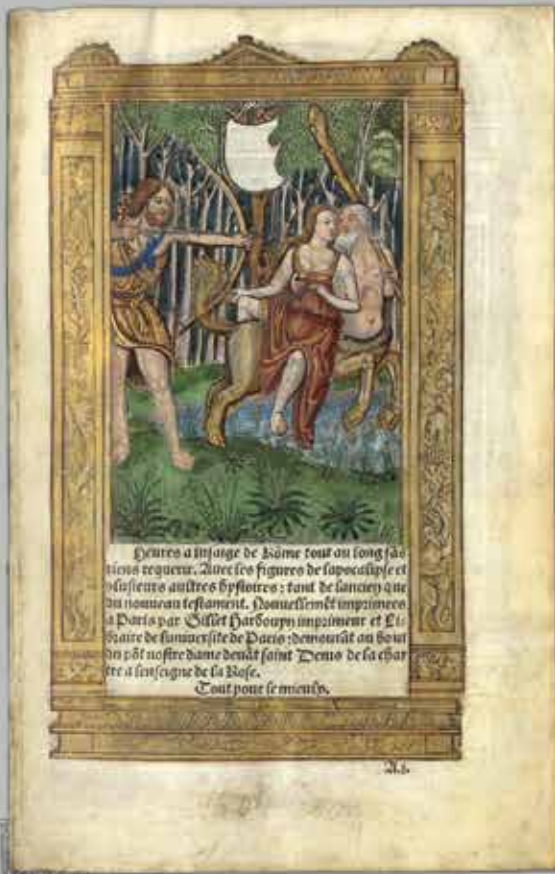 Heures a lusaige de Rōme tout au long sās
riens requerir. Auec les figures de lapocalipse et
plusieurs aultres hystoires : tant de lancien que
du nouueau testament. Nouuellemēt imprimees
a Paris par Gillet Hardouyn imprimeur et Li-
braire de luniuersite de Paris : demourāt au bout
du pōt nostre dame deuāt saint Denis de la char
tre a lenseigne de la Rose.
Tout pour le mieulx.
A.i.